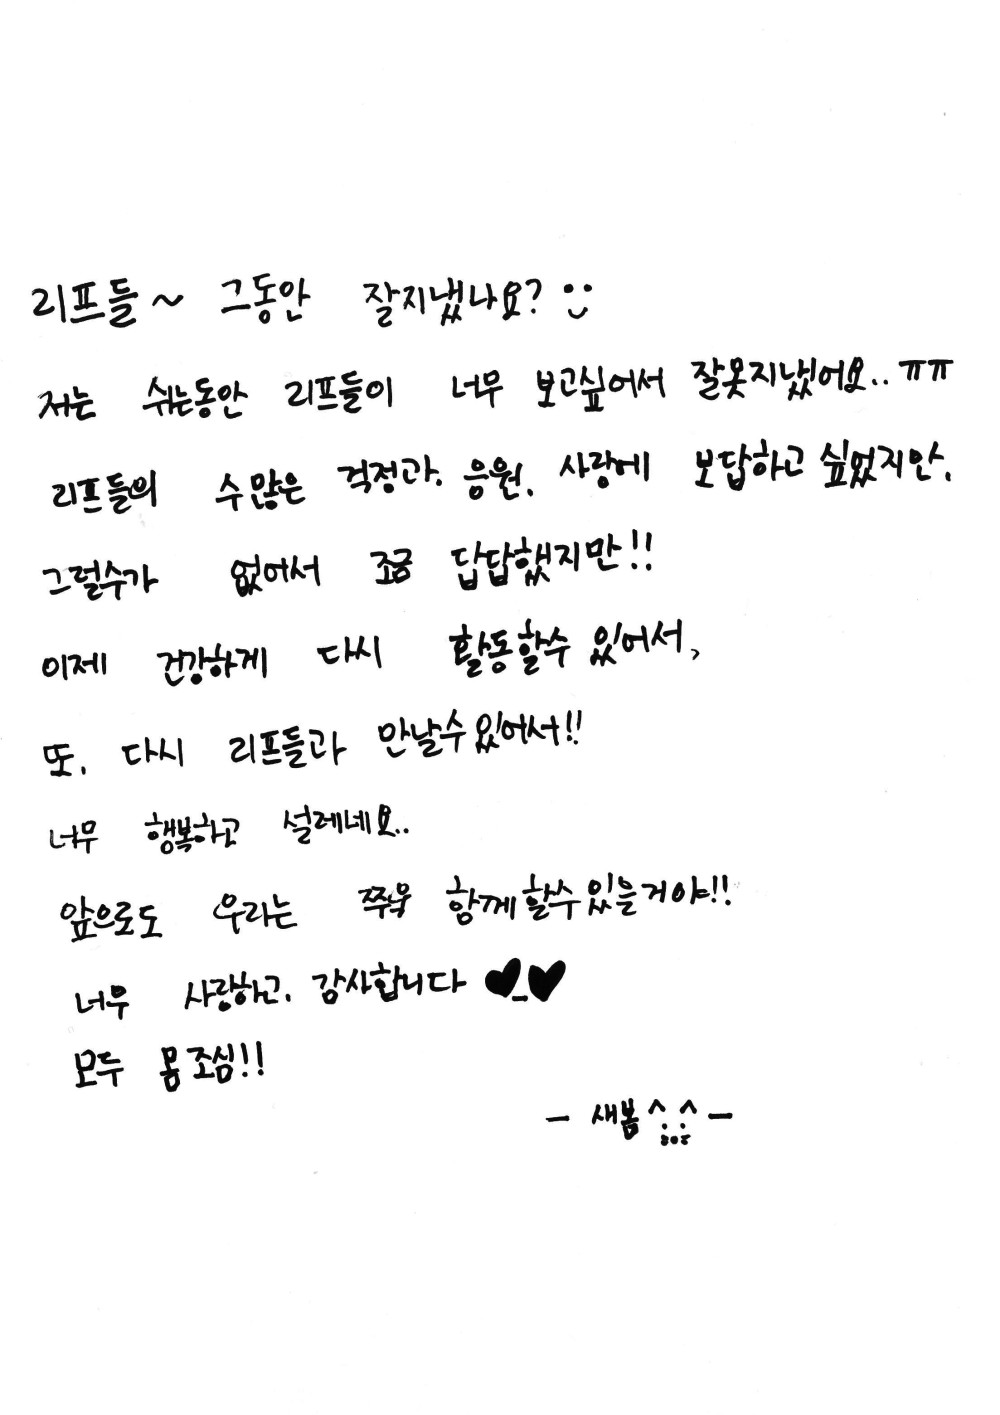 리프들~ 그동안 잘지냈나요? :)
저는 쉬는동안 리프들이 너무 보고싶어서 잘못지냈어요.. ㅠㅠ
리프들의 수많은 걱정과, 응원, 사랑에 보답하고 싶었지만,
그럴수가 없어서 조금 답답했지만!!
이제 건강하게 다시 활동할수 있어서,
또, 다시 리프들과 만날수있어서!!
너무 행복하고 설레네요..
앞으로도 우리는 쭈욱 함께할수있을거야!!
너무 사랑하고, 감사합니다 ♥_♥
모두 몸조심!!
- 새봄 ^..^ -